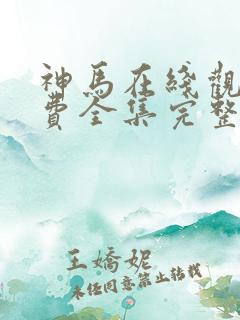 神馬在綫觀
費全集完整
王嬌妮
未经同意禁止转载